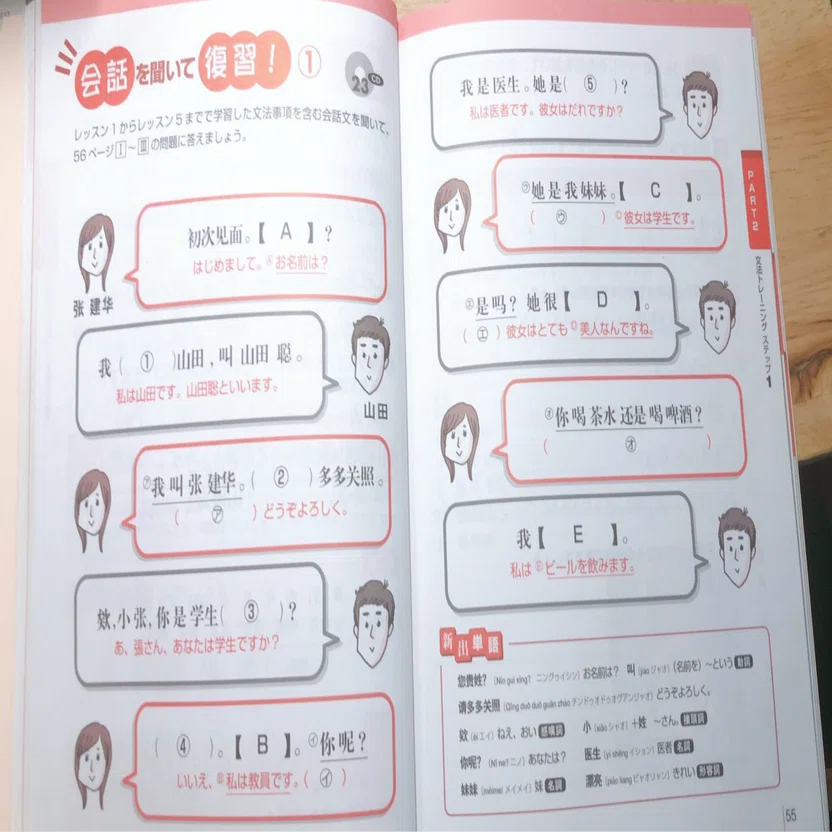 会話を聞いて復習！①
CD
23
レッスン1からレッスン5までで学習した文法事項を含む会話文を聞いて、
56ページⅠ～Ⅲの問題に答えましょう。
初次见面。【 A 】？
はじめまして。Ⓐお名前は？
张 建华
我（ ① ）山田，叫 山田 聪。
私は山田です。山田聡といいます。
山田
㋐我 叫 张 建华。（ ② ）多多关照。
（ ㋐ ）どうぞよろしく。
欸，小张，你是学生（ ③ ）？
あ、張さん、あなたは学生ですか？
（ ④ ）。【 B 】。㋑你呢？
いいえ、Ⓑ私は教員です。（ ㋑ ）
我是医生。她是（ ⑤ ）？
私は医者です。彼女はだれですか？
㋒她是我妹妹。【 C 】。
（ ㋒ ）Ⓒ彼女は学生です。
㋓是吗？ 她很【 D 】。
（ ㋓ ）彼女はとてもⒹ美人なんですね。
㋔你喝茶水还是喝啤酒？
（ ㋔ ）
我【 E 】。
私はⒺビールを飲みます。
新出単語
您贵姓？〔Nín guì xìng? ニングゥイシン〕お名前は？ 叫〔jiào ジャオ〕（名前を）～という 動詞
请多多关照〔Qǐng duō duō guān zhào チンドゥオドゥオグアンジャオ〕どうぞよろしく。
欸〔éi エイ〕ねえ、おい 感嘆詞 小〔xiǎo シャオ〕＋姓 ～さん。接頭詞
你呢？〔Nǐ ne? ニノ〕あなたは？ 医生〔yī shēng イション〕医者 名詞
妹妹〔mèimei メイメイ〕妹 名詞 漂亮〔piào liang ピャオリャン〕きれい 形容詞
PART2
文法トレーニング ステップ1
55